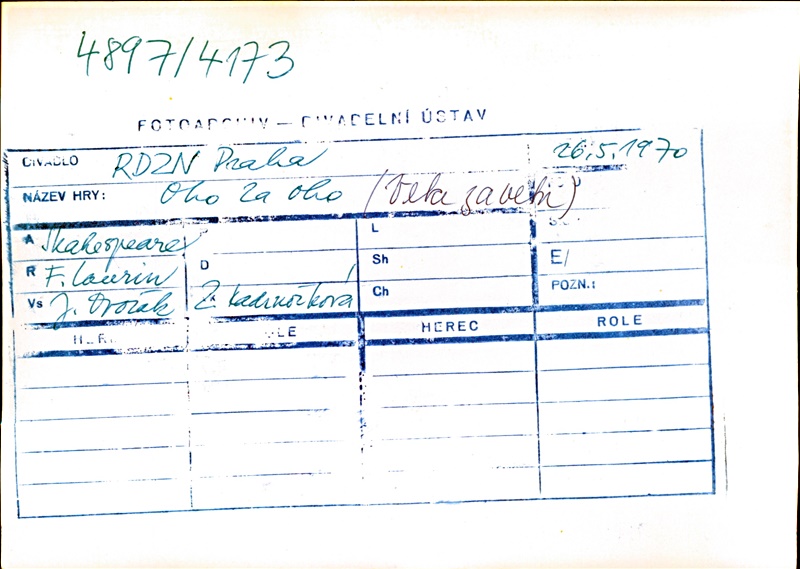 4897/4173
FOTOARCHIV — DIVADELNÍ ÚSTAV
DIVADLO RDZN Praha 26.5.1970
NÁZEV HRY: Oko za oko (Veta za vetu)
A Shakespeare L
R F. Laurin D Sh E/
Vs J. Dvořák Z. Kadrnožková Ch POZN.:
HEREC ROLE HEREC ROLE